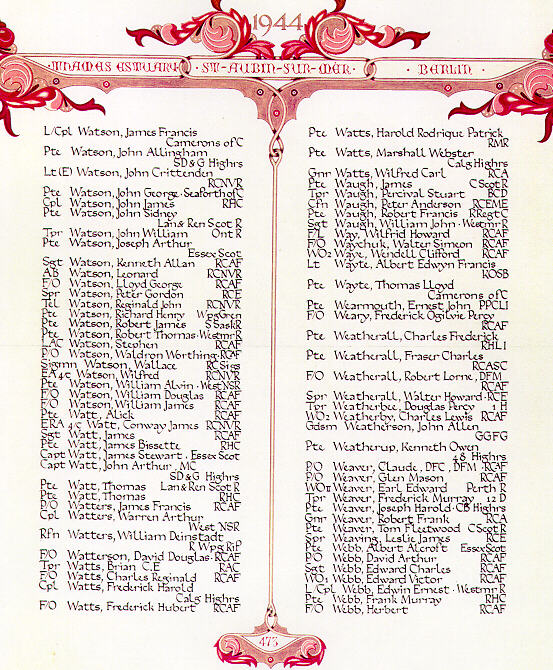 1944
THAMES ESTUARY · ST-AUBIN-SUR-MER · BERLIN ·
L/Cpl Watson, James Francis
Camerons of C
Pte Watson, John Allingham
SD&G Highrs
Lt(E) Watson, John Crittenden
RCNVR
Pte Watson, John George · Seaforth of C
Cpl Watson, John James RHC
Pte Watson, John Sidney
Lan & Ren Scot R
Tpr Watson, John William Ont R
Pte Watson, Joseph Arthur
Essex Scot
Sgt Watson, Kenneth Allan RCAF
AB Watson, Leonard RCNVR
F/O Watson, Lloyd George RCAF
Spr Watson, Peter Gordon RCE
Tel Watson, Reginald John RCNVR
Pte Watson, Richard Henry WpgGren
Pte Watson, Robert James S SaskR
Pte Watson, Robert Thomas · Westmr R
LAC Watson, Stephen RCAF
P/O Watson, Waldron Worthing · RCAF
Sigmn Watson, Wallace RCSigs
EA4c Watson, Wilfred RCNVR
Pte Watson, William Alvin · West NSR
F/O Watson, William Douglas RCAF
F/O Watson, William James RCAF
Pte Watt, Alick RCAF
ERA 4c Watt, Conway James RCNVR
Sgt Watt, James RCAF
Pte Watt, James Bissette RHC
Capt Watt, James Stewart · Essex Scot
Capt Watt, John Arthur, MC
SD&G Highrs
Pte Watt, Thomas Lan & Ren Scot R
Pte Watt, Thomas RHC
P/O Watters, James Francis RCAF
Cpl Watters, Warren Arthur
West NSR
Rfn Watters, William Deinstadt
R Wpg Rif
F/O Watterson, David Douglas · RCAF
Tpr Watts, Brian C.E RAC
F/O Watts, Charles Reginald RCAF
Cpl Watts, Frederick Harold
Calg Highrs
F/O Watts, Frederick Hubert RCAF
Pte Watts, Harold Rodrique Patrick
RMR
Pte Watts, Marshall Webster
Calg Highrs
Gnr Watts, Wilfred Carl RCA
Pte Waugh, James C Scot R
Tpr Waugh, Percival Stuart BCD
Cfn Waugh, Peter Anderson RCEME
Pte Waugh, Robert Francis R Regt C
Sgt Waugh, William John · Westmr R
F/L Way, Wilfrid Howard RCAF
F/O Waychuk, Walter Simeon RCAF
WO2 Waye, Wendell Clifford RCAF
Lt Wayte, Albert Edwyn Francis
ROSB
Pte Wayte, Thomas Lloyd
Camerons of C
Pte Wearmouth, Ernest John PPCLI
F/O Weary, Frederick Ogilvie Percy
RCAF
Pte Weatherall, Charles Frederick
RHLI
Pte Weatherall, Fraser Charles
RCASC
F/O Weatherall, Robert Lorne, DFM
RCAF
Spr Weatherall, Walter Howard · RCE
Tpr Weatherbee, Douglas Percy 1 H
WO2 Weatherby, Charles Lewis RCAF
Gdsm Weatherson, John Allen
GGFG
Pte Weatherup, Kenneth Owen
48 Highrs
P/O Weaver, Claude, DFC, DFM · RCAF
P/O Weaver, Glen Mason RCAF
WOII Weaver, Earl Edward Perth R
Tpr Weaver, Frederick Murray 12 D
Pte Weaver, Joseph Harold · CB Highrs
Gnr Weaver, Robert Frank RCA
Pte Weaver, Tom Fleetwood C Scot R
Spr Weaving, Leslie James RCE
Pte Webb, Albert Alcroft Essex Scot
P/O Webb, David Arthur RCAF
Sgt Webb, Edward Charles RCAF
WO1 Webb, Edward Victor RCAF
L/Cpl Webb, Edwin Ernest · Westmr R
Pte Webb, Frank Murray RHC
F/O Webb, Herbert RCAF
473